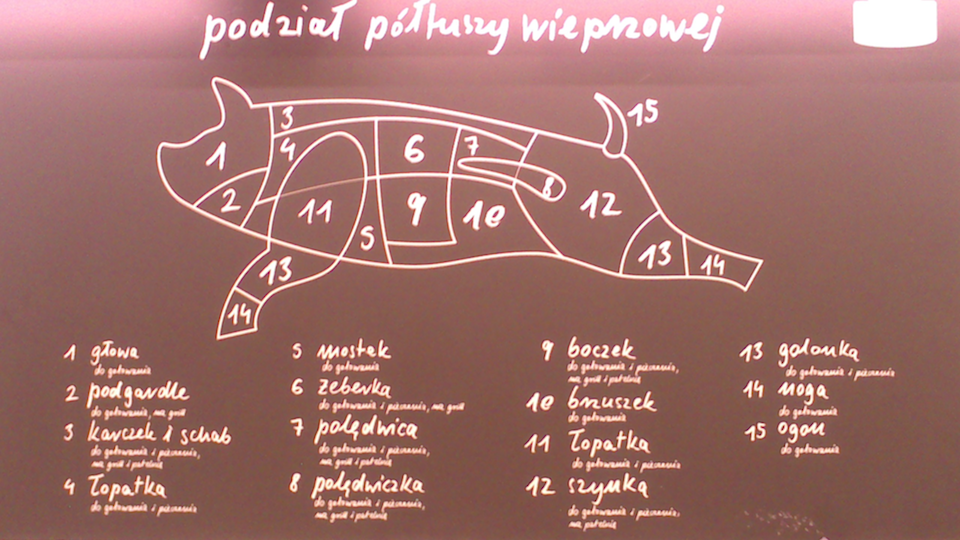 podział półtuszy wieprzowej
1
2
3
4
5
6
7
8
9
10
11
12
13
14
13
14
15
1 głowa
do gotowania
2 podgardle
do gotowania, na grill
3 karczek i schab
do gotowania i pieczenia,
na grill i patelnię
4 łopatka
do gotowania i pieczenia
5 mostek
do gotowania
6 żeberka
do gotowania i pieczenia, na grill
7 polędwica
do gotowania i pieczenia,
na grill i patelnię
8 polędwiczka
do gotowania i pieczenia,
na grill i patelnię
9 boczek
do gotowania i pieczenia,
na grill i patelnię
10 brzuszek
do gotowania
11 łopatka
do gotowania i pieczenia
12 szynka
do gotowania i pieczenia,
na patelnię
13 golonka
do gotowania i pieczenia
14 noga
do gotowania
15 ogon
do gotowania